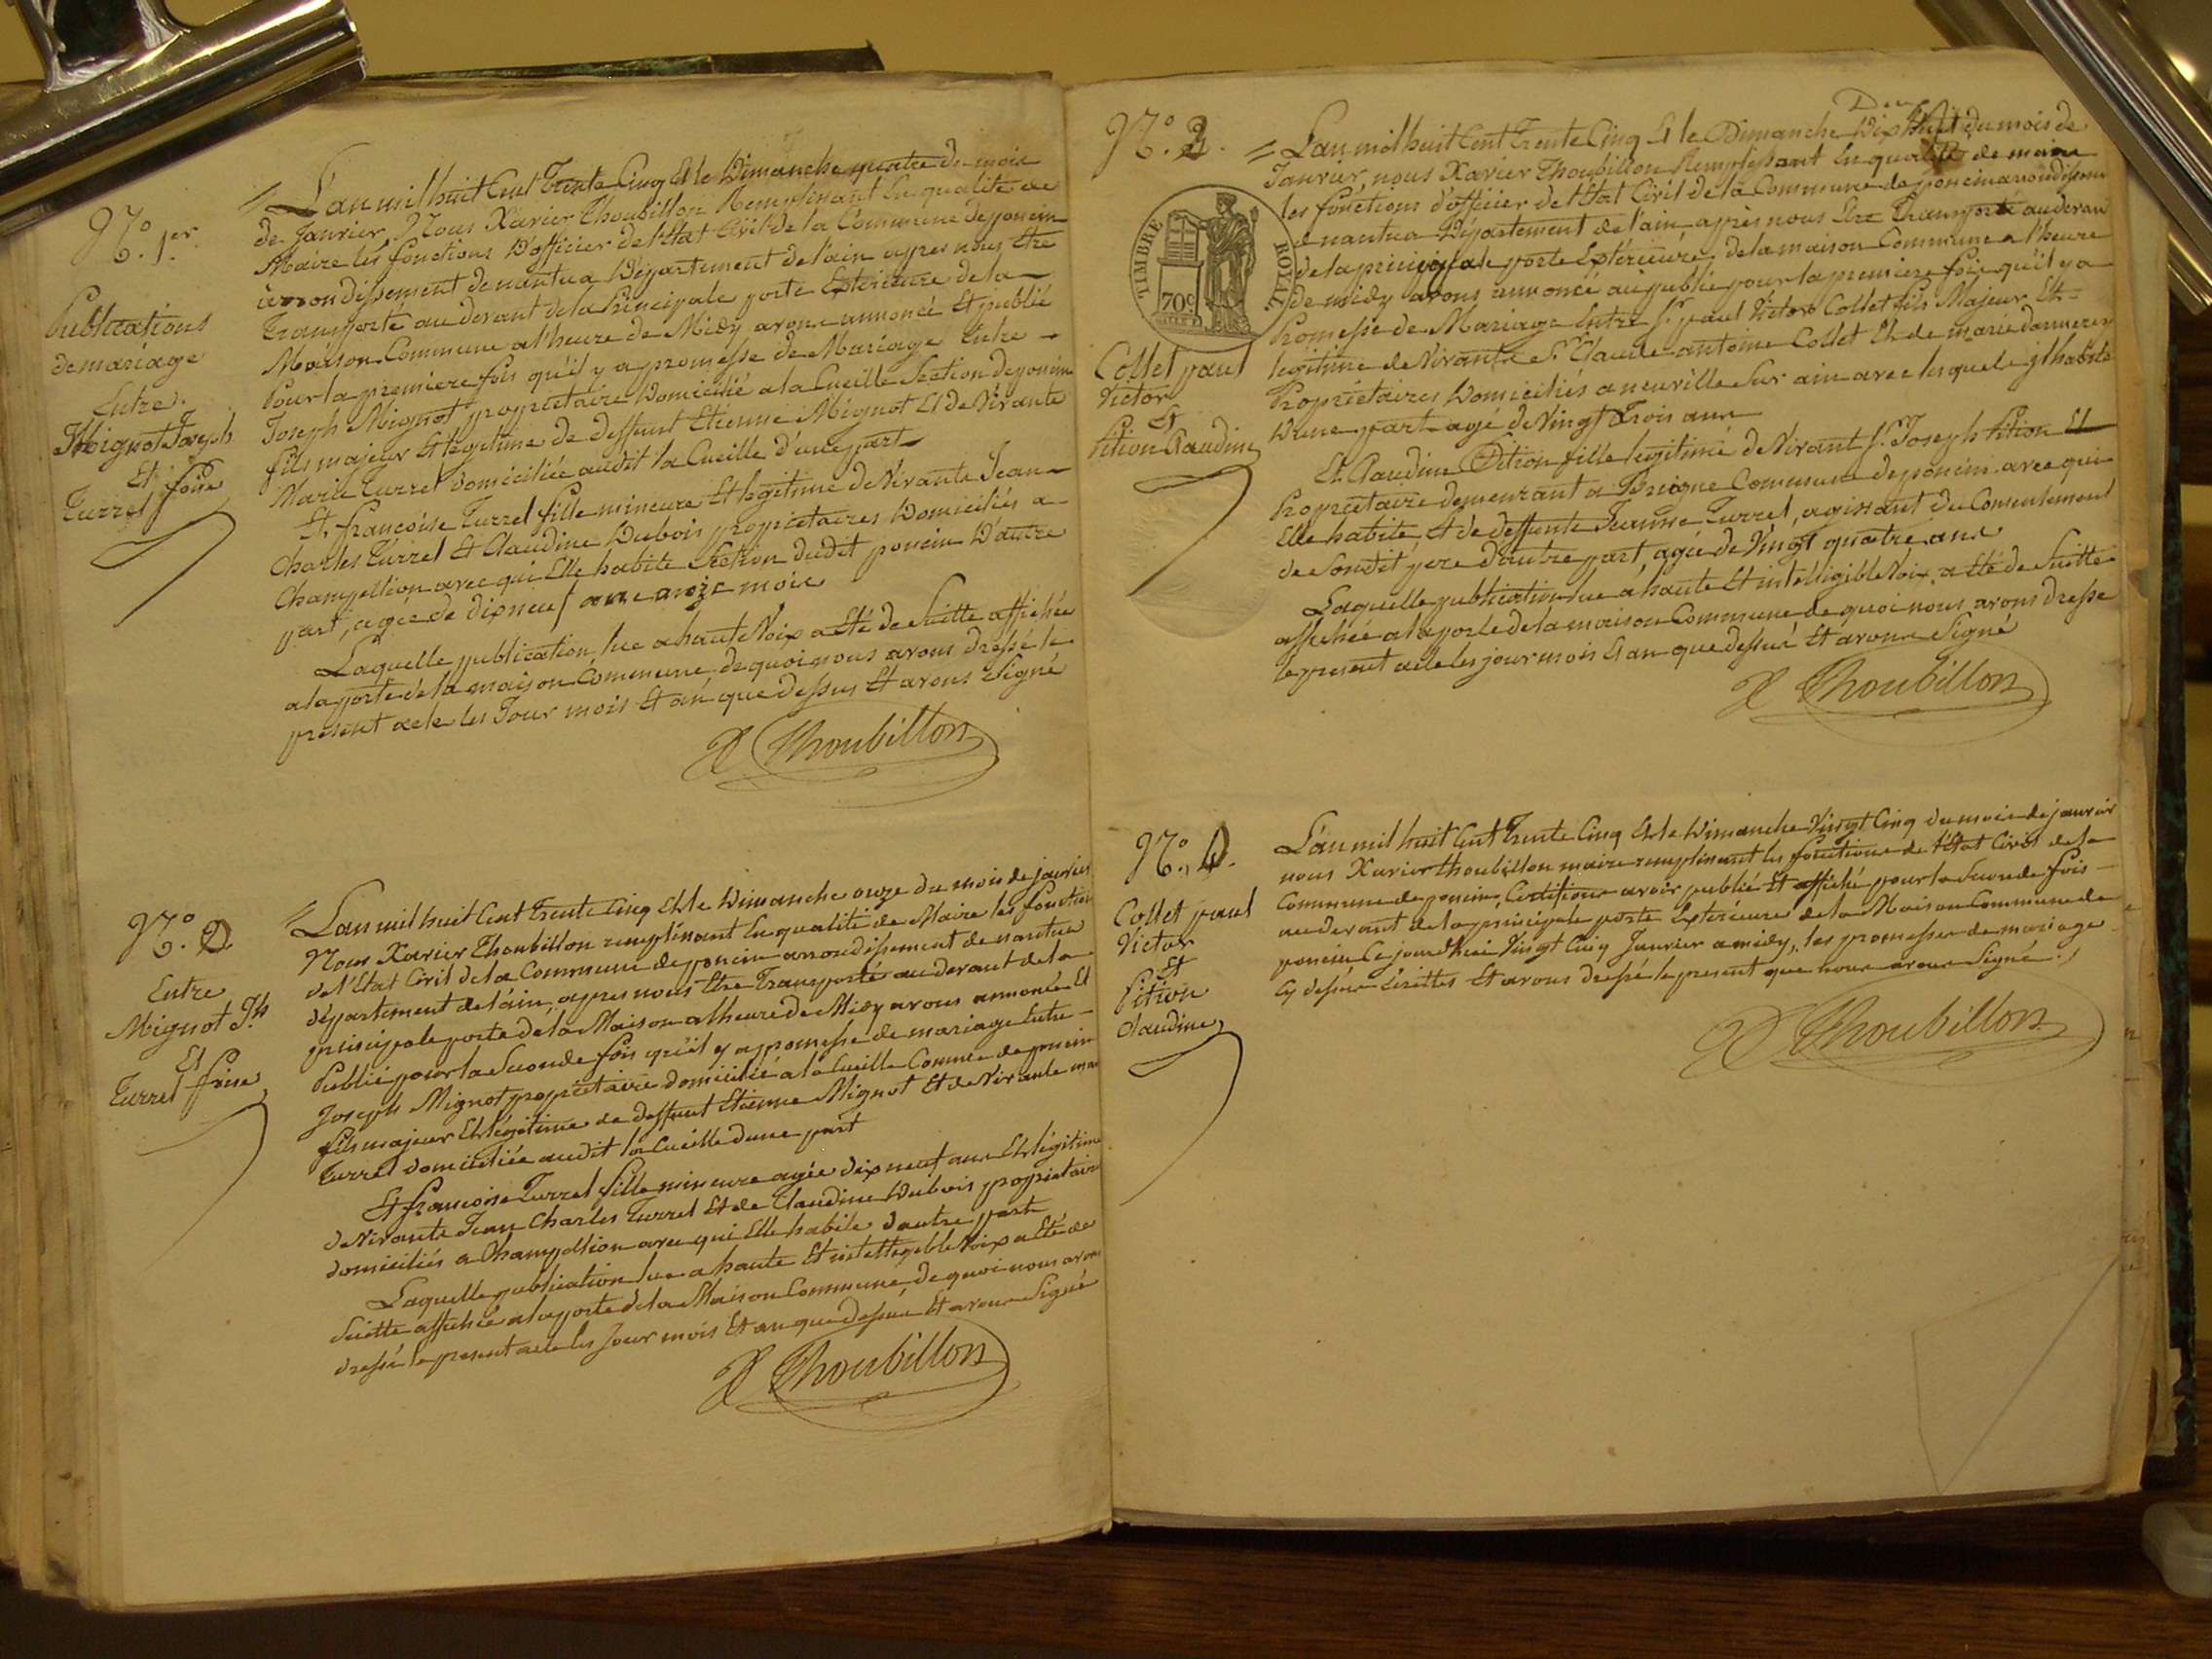 N.o 1.er
Publications
de mariage
Entre
Mignot Joseph
Et
Turrel foise
= L'an mil huit Cent Trente Cinq Et le Dimanche quatre du mois
de Janvier, Nous Xavier Thoubillon Remplissant En qualité de
Maire les fonctions D'officier de l'Etat Civil de la Commune de poncin
arrondissement de nantua Département de l'ain apres nous Etre
Transporté au devant de la Principale porte Exterieure de la
Maison Commune a l'heure de Midy avons annoncé Et publié
Pour la premiere fois qu'il y a promesse de Mariage Entre
Joseph Mignot propriétaire Domicilié a la Cueille Section de poncin
fils majeur Et légitime de deffunt Etienne Mignot Et de Vivante
Marie Turrel domiciliée audit la Cueille d'une part
Et françoise Turrel fille mineure Et legitime de Vivants Jean
Charles Turrel Et Claudine Dubois propriétaires Domiciliés a
Champellion avec qui Elle habite Section dudit poncin D'autre
part, agée de dix neuf ans onze mois
Laquelle publication lue a haute Voix a été de Suitte affichée
a la porte de la maison Commune, de quoi nous avons dressé le
présent acte les Jour mois Et an que dessus Et avons Signé
X Thoubillon
N.o 2.
Entre
Mignot Jh
Et
Turrel foise
= L'an mil huit Cent Trente Cinq Et le Dimanche onze du mois de janvier
Nous Xavier Thoubillon remplissant En qualité de Maire les fonction
de l'Etat Civil de la Commune de poncin arrondissement de nantua
département de l'ain, apres nous Etre Transporté au devant de la
principale porte de la Maison a l'heure de Midy avons annoncé Et
Publié pour la Seconde fois qu'il y a promesse de mariage Entre
Joseph Mignot propriétaire domicilié a la Cueille Comune de poncin
fils majeur Et légitime de deffunt Etienne Mignot Et de Vivante
Turrel domiciliée audit la Cueille d'une part
Et françoise Turrel fille mineure agée dix neuf ans Et légitime
de Vivants Jean Charles Turrel Et de Claudine Dubois propriétaire
domiciliés a Champellion avec qui Elle habite d'autre part
Laquelle publication lue a haute Et intelligible Voix a Eté de
Suitte affichée a la porte de la Maison Commune, de quoi nous avons
dressé le présent acte les Jour mois Et an que dessus Et avons Signé
X Thoubillon
N.o 3.
TIMBRE ROYAL
70c
Collet paul
Victor
Et
Pition Claudine
= L'an mil huit Cent Trente Cinq Et le Dimanche Dix Huit du mois de
Janvier, nous Xavier Thoubillon Remplissant En qualité de maire
les fonctions d'officier de l'Etat Civil de la Commune de poncin arondissem
de nantua Département de l'ain après nous Etre Transporté au devant
de la principale porte Extérieure, de la maison Commune a l'heure
de midy avons annoncé au publié pour la premiere fois qu'il y a
Promesse de Mariage Entre Sr. paul Victor Collet fils Majeur Et
legitime de Vivants Sr. Claude antoine Collet Et de marie
Propriétaires Domiciliés a neuville Sur ain avec lesquels il habite
D'une part agé de Vingt Trois ans
Et Claudine Pition fille legitime de Vivant Sr. Joseph Pition Et
Propriétaire demeurant a Commune de poncin avec qui
Elle habite, Et de deffunte Jeanne Turrel, agissant du Consentement
de Sondit père d'autre part, agée de Vingt quatre ans
Laquelle publication lue a haute Et intelligible Voix, a Eté de Suitte
affichée a la porte de la maison Commune, de quoi nous avons dressé
le présent acte les jour mois Et an que dessus Et avons Signé
X Thoubillon
N.o 4.
Collet paul
Victor
Et
Pition
Claudine
L'an mil huit Cent Trente Cinq Et le Dimanche Vingt Cinq du mois de janvier
nous Xavier Thoubillon maire remplissant les fonctions de l'Etat Civil de la
Commune de poncin, Certifions avoir publié Et affiché pour la Seconde fois
au devant de la principale porte Extérieure de la Maison Commune de
poncin Ce jourd'hui Vingt Cinq Janvier a midy, les promesses de mariage
Cy dessus Ecrittes Et avons dressé le présent que nous avons Signé
X Thoubillon